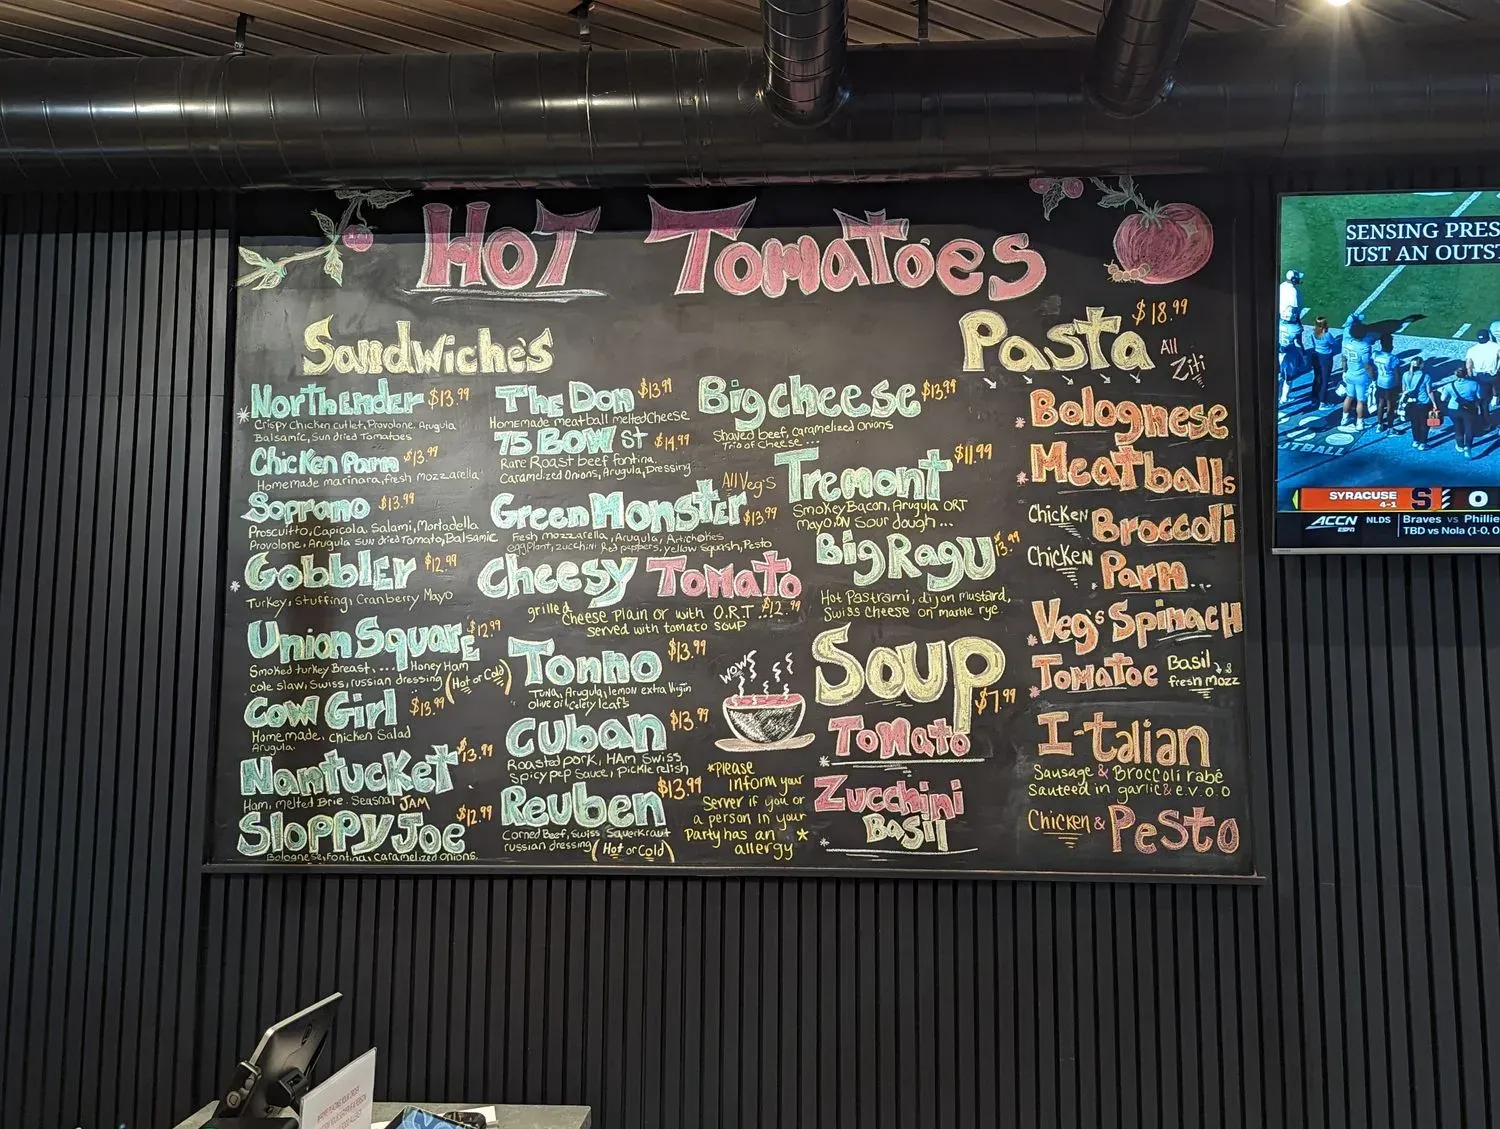 HOT TOMATOES
Sandwiches
NorthEnder $13.99
Crispy Chicken Cutlet, Provolone, Arugula
Balsamic, Sun dried Tomatoes
Chicken Parm $13.99
Homemade marinara, fresh mozzarella
Soprano $13.99
Proscuitto, Capicola, Salami, Mortadella
Provolone, Arugula Sun dried Tomato, Balsamic
Gobbler $12.99
Turkey, Stuffing, Cranberry Mayo
Union Square $12.99
Smoked turkey Breast, ... Honey Ham
cole slaw, Swiss, russian dressing (Hot or Cold)
Cow Girl $13.99
Homemade, Chicken Salad
Arugula.
Nantucket $13.99
Ham, melted Brie, Seasnal JAM
Sloppy Joe $12.99
Bolognese, Fontina, Caramelized Onions.
The Don $13.99
Homemade meatball melted Cheese
75 BOW St $14.99
Rare Roast beef fontina
Caramelized Onions, Arugula, Dressing
Green Monster All Veg's $13.99
Fresh mozzarella, Arugula, Artichokes
eggplant, zucchini Red peppers, yellow Squash, Pesto
Cheesy Tomato
grilled Cheese Plain or with O.R.T ... $12.99
served with tomato soup
Tonno $13.99
Tuna, Arugula, lemon extra Virgin
olive oil, Celery leafs
Cuban $13.99
Roasted pork, HAm Swiss
Spicy pep Sauce, Pickle relish
Reuben $13.99
Corned Beef, Swiss Sauerkraut
russian dressing (Hot or Cold)
Big cheese $13.99
Shaved beef, Caramelized onions
Trio of Cheese ...
Tremont $11.99
Smokey Bacon, Arugula ORT
mayo, ON Sour dough ...
Big Ragu $13.99
Hot Pastrami, dijon mustard,
Swiss Cheese on marble rye
WOW
Soup $7.99
Tomato
Zucchini
Basil
*Please
inform your
Server if you or
a person in your
Party has an *
allergy
Pasta $18.99
All
Ziti
Bolognese
Meatballs
Chicken Broccoli
Chicken Parm...
Veg's Spinach
Tomatoe Basil &
fresh Mozz
I-talian
Sausage & Broccoli rabé
Sauteed in garlic & e.v.o.o
Chicken & Pesto
SENSING PRES
JUST AN OUTS
SYRACUSE
4-1
S
0
ACCN
ESPN
NLDS
Braves vs Phillie
TBD vs Nola (1-0, 0